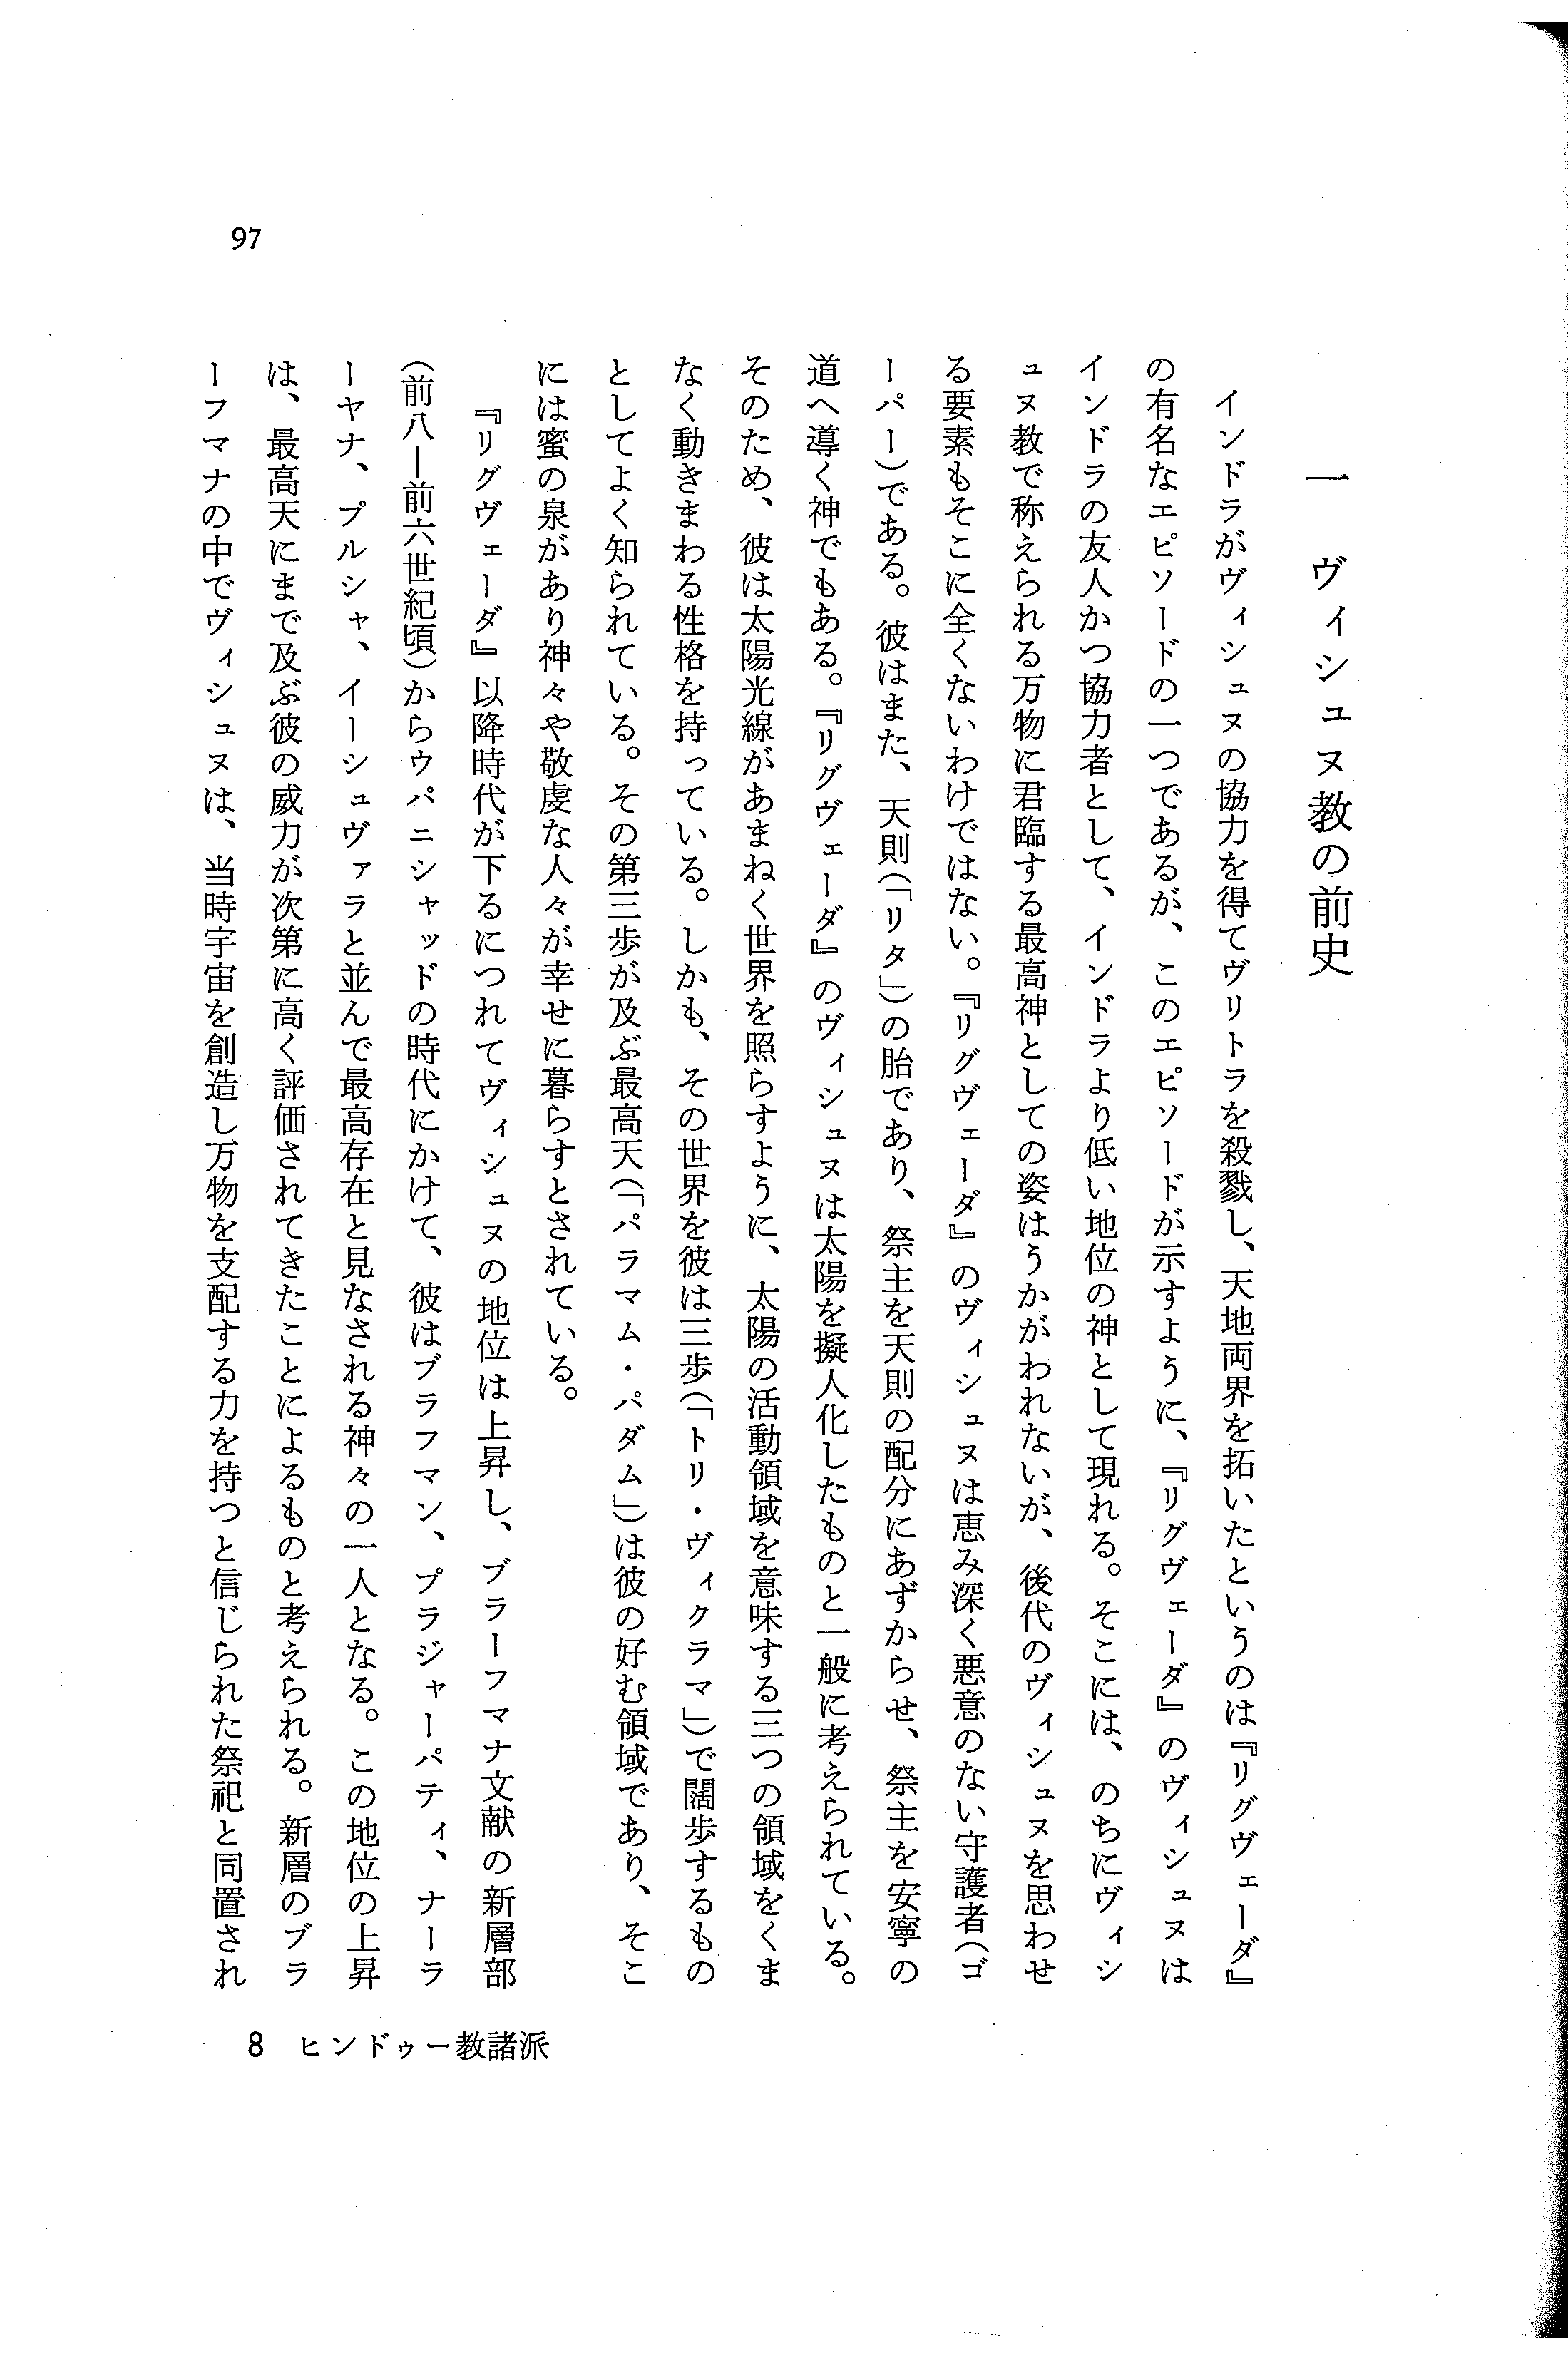 一　ヴィシュヌ教の前史
インドラがヴィシュヌの協力を得てヴリトラを殺戮し、天地両界を拓いたというのは『リグヴェーダ』
の有名なエピソードの一つであるが、このエピソードが示すように、『リグヴェーダ』のヴィシュヌは
インドラの友人かつ協力者として、インドラより低い地位の神として現れる。そこには、のちにヴィシ
ュヌ教で称えられる万物に君臨する最高神としての姿はうかがわれないが、後代のヴィシュヌを思わせ
る要素もそこに全くないわけではない。『リグヴェーダ』のヴィシュヌは恵み深く悪意のない守護者（ゴ
ーパー）である。彼はまた、天則（「リタ」）の胎であり、祭主を天則の配分にあずからせ、祭主を安寧の
道へ導く神でもある。『リグヴェーダ』のヴィシュヌは太陽を擬人化したものと一般に考えられている。
そのため、彼は太陽光線があまねく世界を照らすように、太陽の活動領域を意味する三つの領域をくま
なく動きまわる性格を持っている。しかも、その世界を彼は三歩（「トリ・ヴィクラマ」）で闊歩するもの
としてよく知られている。その第三歩が及ぶ最高天（「パラマム・パダム」）は彼の好む領域であり、そこ
には蜜の泉があり神々や敬虔な人々が幸せに暮らすとされている。
『リグヴェーダ』以降時代が下るにつれてヴィシュヌの地位は上昇し、ブラーフマナ文献の新層部
（前八―前六世紀頃）からウパニシャッドの時代にかけて、彼はブラフマン、プラジャーパティ、ナーラ
ーヤナ、プルシャ、イーシュヴァラと並んで最高存在と見なされる神々の一人となる。この地位の上昇
は、最高天にまで及ぶ彼の威力が次第に高く評価されてきたことによるものと考えられる。新層のブラ
ーフマナの中でヴィシュヌは、当時宇宙を創造し万物を支配する力を持つと信じられた祭祀と同置され
97
8　ヒンドゥー教諸派